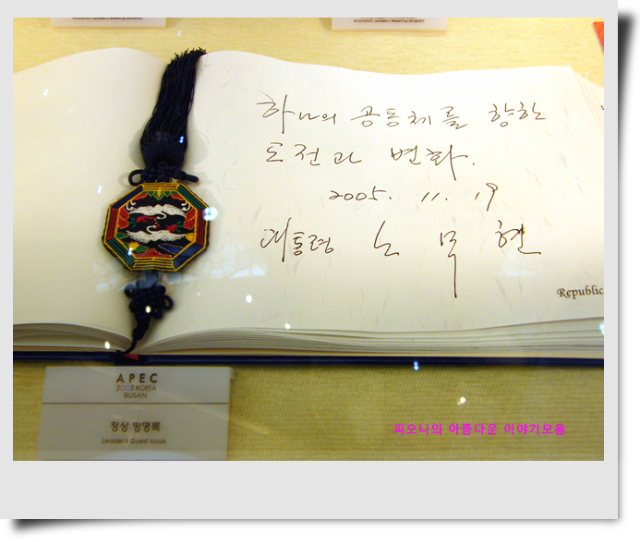 하나의 공동체를 향한
도전과 변화.
2005. 11. 19
대통령 노 무 현
Republic
APEC
2005 KOREA
BUSAN
정상 방명록
Leaders' Guest book
피모나의 아름다운 이야기모음